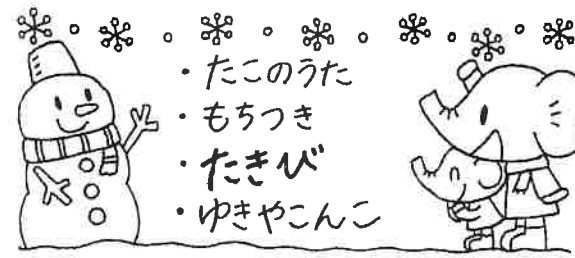 ・たこのうた
・もちつき
・たきび
・ゆきやこんこ